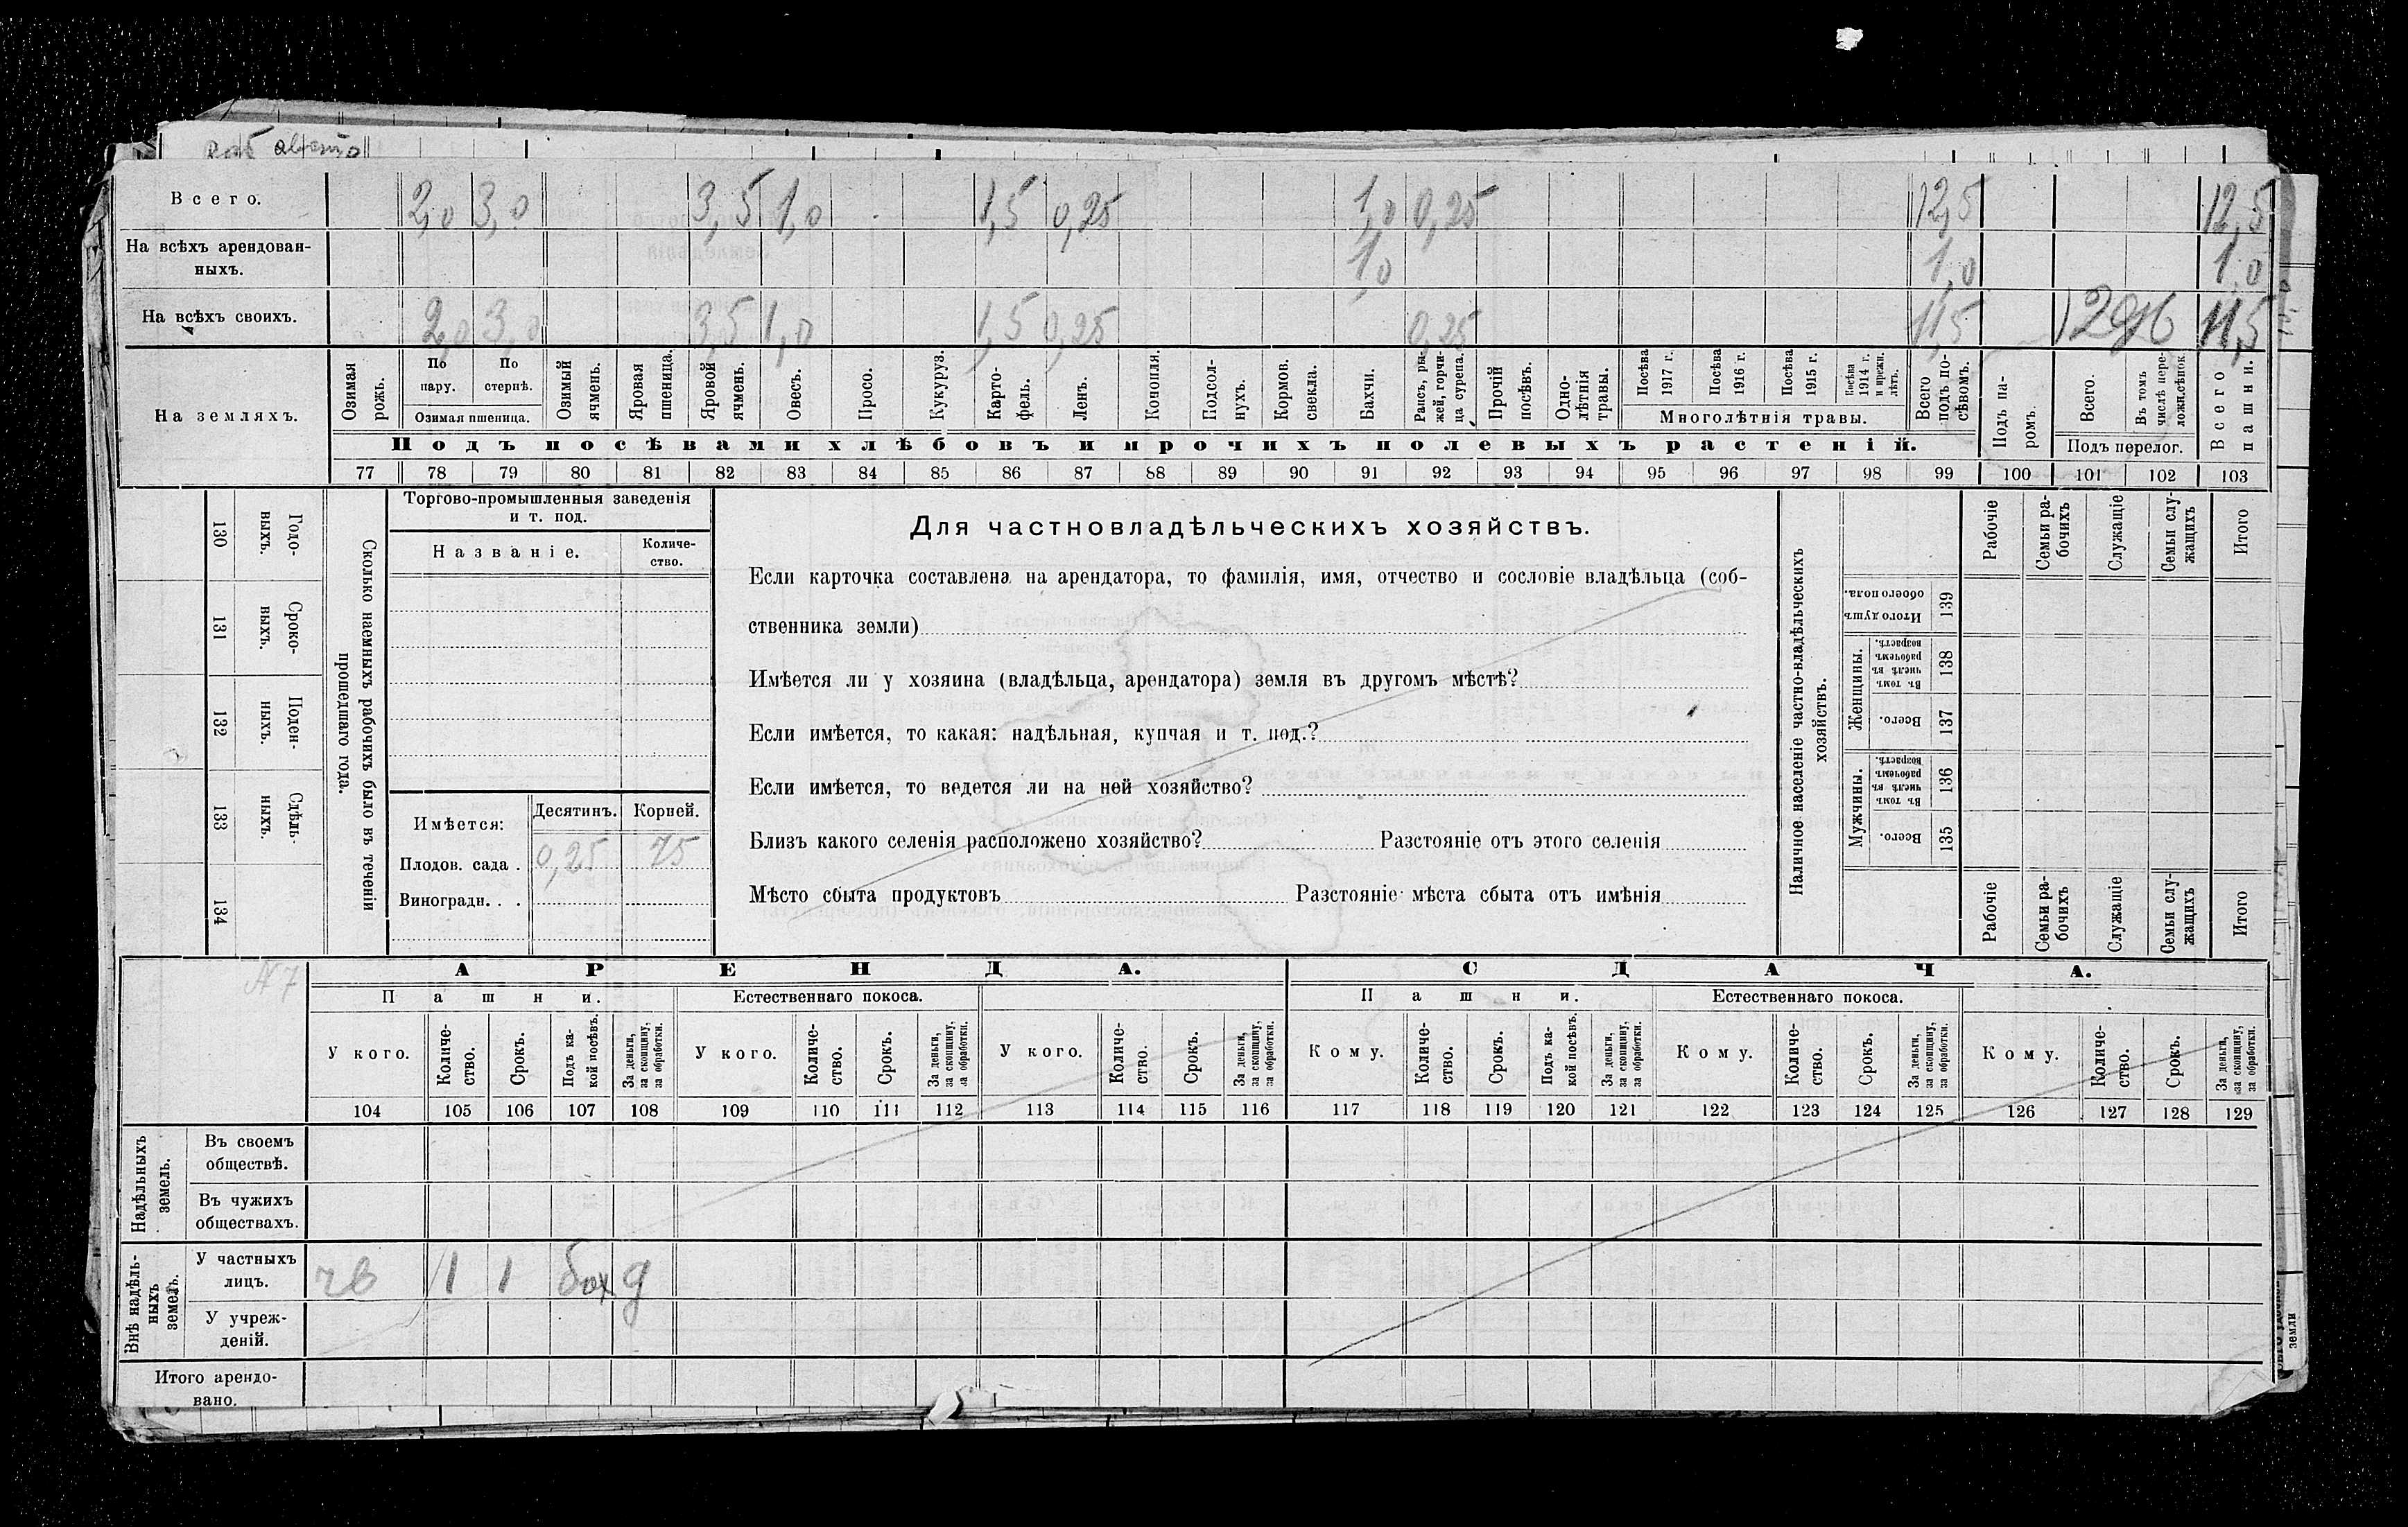 Всего. 2,0 3,0 3,5 1,0 1,5 0,25 1,0 0,25 12,5 12,5
На всѣхъ арендован-
ныхъ. 1,0 1,0 1,0
На всѣхъ своихъ. 2,0 3,0 3,5 1,0 1,5 0,25 0,25 11,5 11,5
На земляхъ.
Озимая рожь.
По пару.
По стернѣ.
Озимая пшеница.
Озимый ячмень.
Яровая пшеница.
Яровой ячмень.
Овесъ.
Просо.
Кукуруз.
Карто-
фель.
Ленъ.
Конопля.
Подсол-
нухъ.
Кормов. свекла.
Бахчи.
Рапсъ, ры-
жей, горчи-
ца сурепа.
Прочій посѣвъ.
Одно-
лѣтнія травы.
Посѣва 1917 г.
Посѣва 1916 г.
Посѣва 1915 г.
Посѣва 1914 г. и прежн. лѣтъ.
Многолѣтнія травы.
Всего подъ по-
сѣвомъ.
Подъ посѣвами хлѣбовъ и прочихъ полевыхъ растеній.
Подъ па-
ромъ.
Всего.
Въ томъ числѣ пере-
ложн.сѣнок.
Подъ перелог.
Всего пашни.
77 78 79 80 81 82 83 84 85 86 87 88 89 90 91 92 93 94 95 96 97 98 99 100 101 102 103
130 Годо-
выхъ.
131 Сроко-
выхъ.
132 Поден-
ныхъ.
133 Сдѣль-
ныхъ.
134
Сколько наемныхъ рабочихъ было въ теченіи
прошедшаго года.
Торгово-промышленныя заведенія
и т. под.
Названіе.
Количе-
ство.
Имѣется: Десятинъ. Корней.
Плодов. сада . 0,25 75
Виноградн. . .
Для частновладѣльческихъ хозяйствъ.
Если карточка составлена на арендатора, то фамилія, имя, отчество и сословіе владѣльца (соб-
ственника земли)
Имѣется ли у хозяина (владѣльца, арендатора) земля въ другомъ мѣстѣ?
Если имѣется, то какая: надѣльная, купчая и т. под.?
Если имѣется, то ведется ли на ней хозяйство?
Близъ какого селенія расположено хозяйство? Разстояніе отъ этого селенія
Мѣсто сбыта продуктовъ Разстояніе мѣста сбыта отъ имѣнія
Наличное населеніе частно-владѣльческихъ
хозяйствъ.
Итого душъ обоего пола. 139
Женщины.
Въ томъ числѣ въ рабочемъ возрастѣ. 138
Всего. 137
Мужчины.
Въ томъ числѣ въ рабочемъ возрастѣ. 136
Всего. 135
Рабочіе
Семьи ра-
бочихъ
Служащіе
Семьи слу-
жащихъ
Итого
Рабочіе
Семьи ра-
бочихъ
Служащіе
Семьи слу-
жащихъ
Итого
АРЕНДА. СДАЧА.
Пашни. Естественнаго покоса. Пашни. Естественнаго покоса.
У кого.
Количе-
ство.
Срокъ.
Подъ ка-
кой посѣвъ.
За деньги, за скопщину, за обработки.
У кого.
Количе-
ство.
Срокъ.
За деньги, за скопщину, за обработки.
У кого.
Количе-
ство.
Срокъ.
За деньги, за скопщину, за обработки.
Кому.
Количе-
ство.
Срокъ.
Подъ ка-
кой посѣвъ.
За деньги, за скопщину, за обработки.
Кому.
Количе-
ство.
Срокъ.
За деньги, за скопщину, за обработки.
Кому.
Количе-
ство.
Срокъ.
За деньги, за скопщину, за обработки.
104 105 106 107 108 109 110 111 112 113 114 115 116 117 118 119 120 121 122 123 124 125 126 127 128 129
Надѣльныхъ земель.
Въ своемъ
обществѣ.
Въ чужихъ
обществахъ.
Внѣ надѣль-
ныхъ
земель.
У частныхъ
лицъ. чв 1 1 бах д
У учреж-
деній.
Итого арендо-
вано.
земли